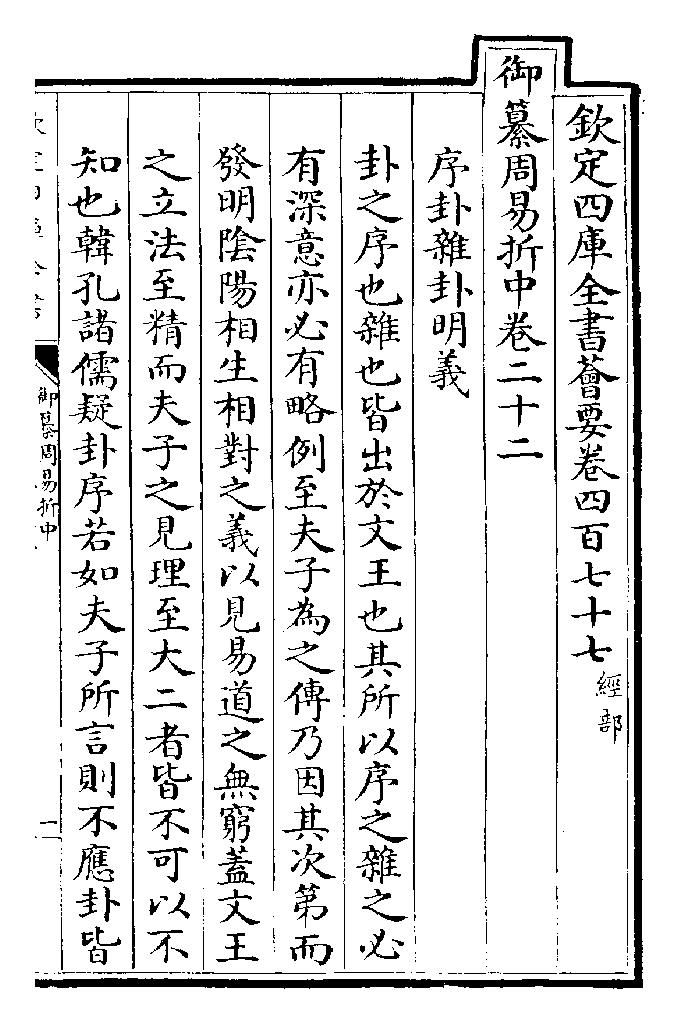 欽定四庫全書薈要卷四百七十七 經部
御纂周易折中卷二十二
序卦雜卦明義
卦之序也雜也皆出於文王也其所以序之雜之必
有深意亦必有略例至夫子為之傳乃因其次第而
發明陰陽相生相對之義以見易道之無窮蓋文王
之立法至精而夫子之見理至大二者皆不可以不
知也韓孔諸儒疑卦序若如夫子所言則不應卦皆
御纂周易折中